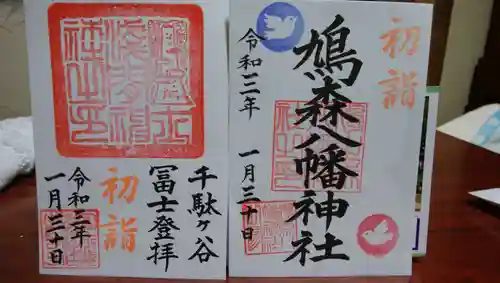 初詣
鳩森八幡神社
令和三年 一月三十日
千駄ヶ谷
冨士登拝
初詣
令和三年
一月三十日